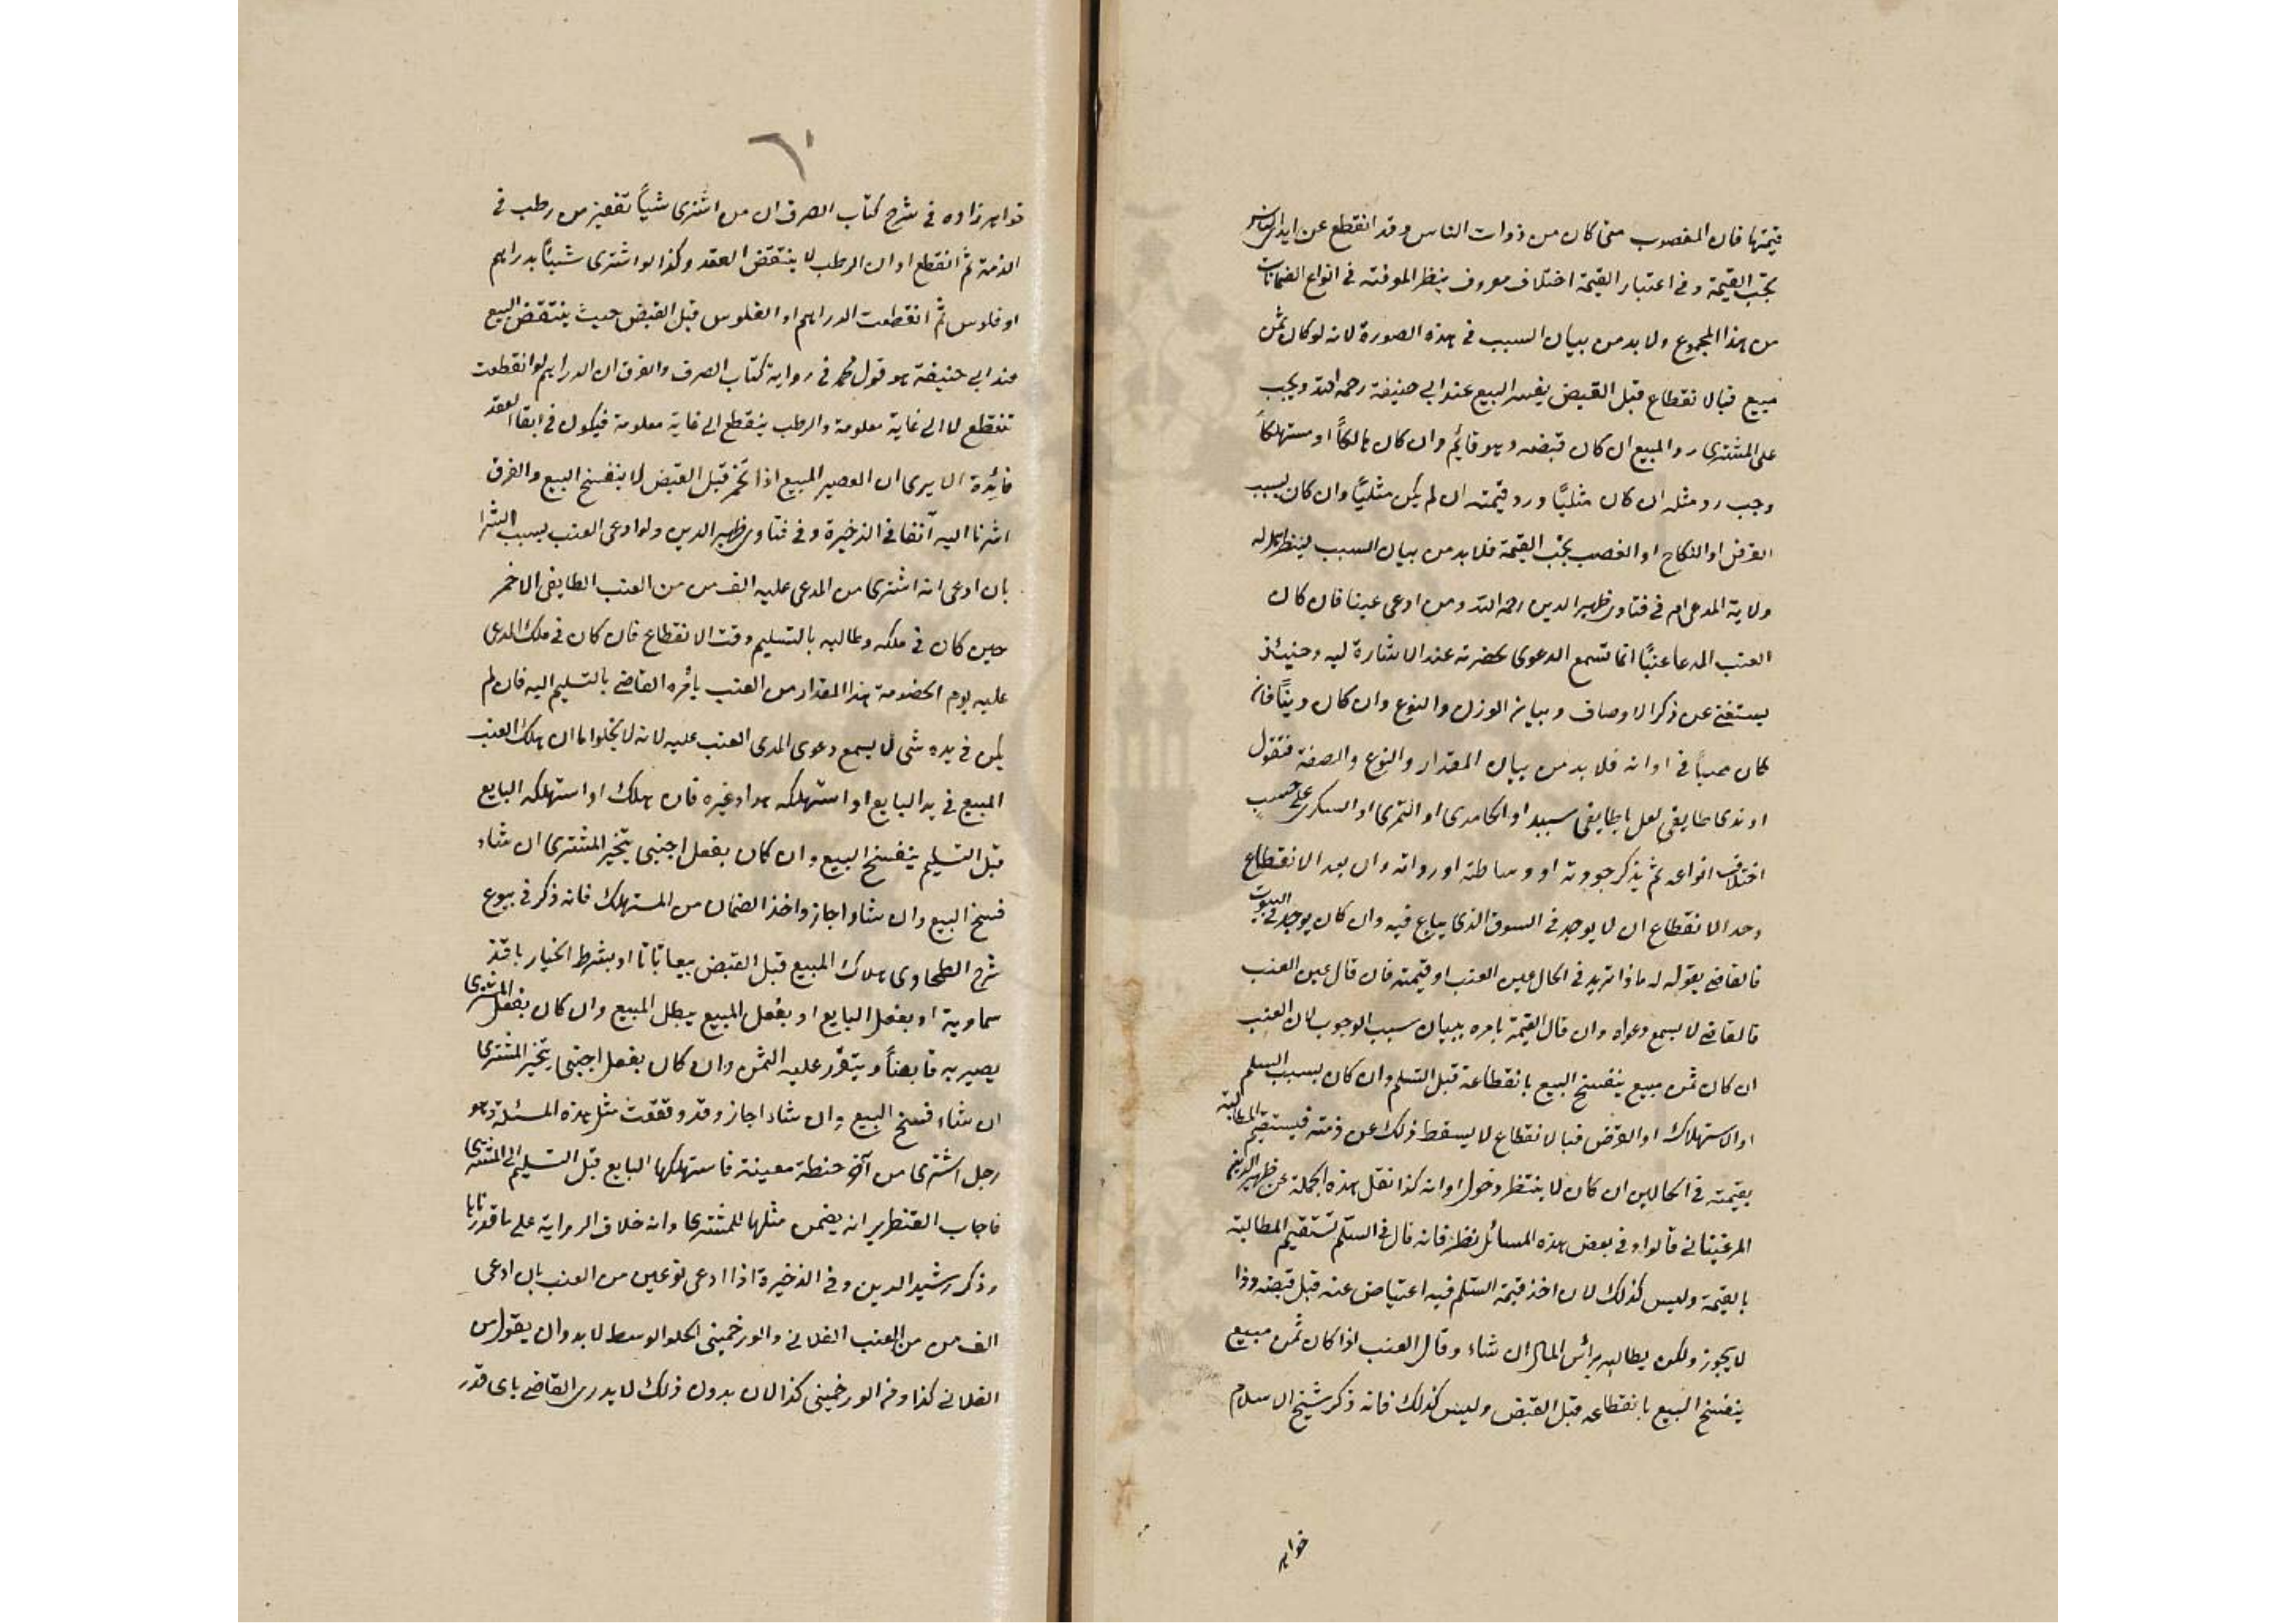 قيمتها فان المغصوب متى كان من ذوات الناس وقد انقطع عن ايدى الناس
يجب القيمة وفى اعتبار القيمة اختلاف معروف ينظر الموفته فى انواع الضمانات
من هذا المجموع ولا بد من بيان السبب فى هذه الصورة لانه لو كان ثمن
مبيع فبالانقطاع قبل القبض يفسد البيع عند ابى حنيفة رحمه الله ويجب
على المشترى رد المبيع ان كان قبضه وهو قائم وان كان هالكاً او مستهلكاً
وجب رد مثله ان كان مثليّاً ورد قيمته ان لم يكن مثليّاً وان كان بسبب
القرض او النكاح او الغصب يجب القيمة فلا بد من بيان السبب لينظر اهل له
ولاية المدعى ام فى فتاوى ظهير الدين رحمه الله ومن ادعى عينا فان كان
العنب المدعا عنبًا انما تسمع الدعوى بحضرته عند الاشارة ليه وحنيئذ
يستغنى عن ذكر الاوصاف وبيان الوزن والنوع وان كان ديناً فان
كان مبياً فى اوانه فلا بد من بيان المقدار والنوع والصفة فتقول
اوندى طايفى لعل يا طايفى سبيد او الحامدى او التمرى او السكرى على حسب
اختلاف انواعه ثم يذكر جودته او وساطته اورداته وان بعد الانقطاع
وحد الانقطاع ان لا يوجد فى السوق الذى يباع فيه وان كان يوجد فى البيوت
فالقاضى يقول له ماذا تريد فى الحال عين العنب او قيمته فان قال عين العنب
فالقاضى لا يسمع دعواه وان قال القيمة يامره ببيان سبب الوجوب لان العنب
ان كان ثمن مبيع ينفسخ البيع بانقطاعه قبل التسلم وان كان بسبب السلم
او الاستهلاك او القرض فبالانقطاع لا يسقط ذلك عن ذمته فيستقيم المطالبة
بقيمته فى الحالين ان كان لا ينتظر دخول اوانه كذا نقل هذه الجملة عن ظهير الدين
المرغينانى قالوا وفى بعض هذه المسائل نظر فانه قال فى السّلم تستقيم المطالبة
بالقيمة وليس كذلك لان اخذ قيمة السّلم فيه اعتياض عنه قبل قبضه وذا
لا يجوز ولكن يطالبه براس المال ان شاء وقال العنب اذا كان ثمن مبيع
ينفسخ البيع بانقطاعه قبل القبض وليس كذلك فانه ذكر شيخ الاسلام
خواهر
٦١
خواهر زاده فى شرح كتاب الصرف ان من اشترى شياً بقفيز من رطب فى
الذمة ثم انقطع اوان الرطب لا ينتقض العقد وكذا لو اشترى شيئاً بدراهم
او فلوس ثم انقطعت الدراهم او الفلوس قبل القبض حيث ينتقض البيع
عند ابى حنيفة هو قول محمد فى رواية كتاب الصرف والفرق ان الدراهم لو انقطعت
تنقطع لا الى غاية معلومة والرطب ينقطع الى غاية معلومة فيكون فى ابقا العقد
فائدة الا يرى ان العصير المبيع اذا تخمر قبل القبض لا ينفسخ البيع والفرق
اشرنا اليه آنفا فى الذخيرة وفى فتاوى ظهير الدين ولو ادعى العنب بسبب الشرا
بان ادعى انه اشترى من المدعى عليه الف من من العنب الطايفى الاخمر
حين كان فى ملكه وطالبه بالتسليم وقت الانقطاع فان كان فى ملك المدعى
عليه يوم الخصومة هذا المقدار من العنب يأمره القاضى بالتسليم اليه فان لم
يكن فى يده شى لا يسمع دعوى المدعى العنب عليه لانه لا يخلوا ما ان هلك العنب
المبيع فى يد البايع او استهلكه هو او غيره فان هلك او استهلكه البايع
قبل التسليم ينفسخ البيع وان كان بفعل اجنبى يتخير المشترى ان شاء
فسخ البيع وان شاء اجاز واخذ الضمان من المستهلك فانه ذكر فى بيوع
شرح الطحاوى هلاك المبيع قبل القبض بيعا باتا او بشرط الخيار بافة
سماوية او بفعل البايع او بفعل المبيع يبطل المبيع وان كان بفعل المشترى
يصير به قابضاً ويتقرر عليه الثمن وان كان بفعل اجنبى يتخير المشترى
ان شاء فسخ البيع وان شاء اجاز وقد وقعت مثل هذه المسئلة وهو
رجل اشترى من آخر حنطة معينة فاستهلكها البايع قبل التسليم الى المشترى
فاجاب القنطرير انه يضمن مثلها للمشترى وانه خلاف الرواية على ما قدرنا
وذكر رشيد الدين وفى الذخيرة اذا ادعى نوعين من العنب بان ادعى
الف من من العنب الفلانى والورخمينى الحلو الوسط لا بد وان يقول من
الفلانى كذا ومن الورخمينى كذا لان بدون ذلك لا يدرى القاضى باى قدر